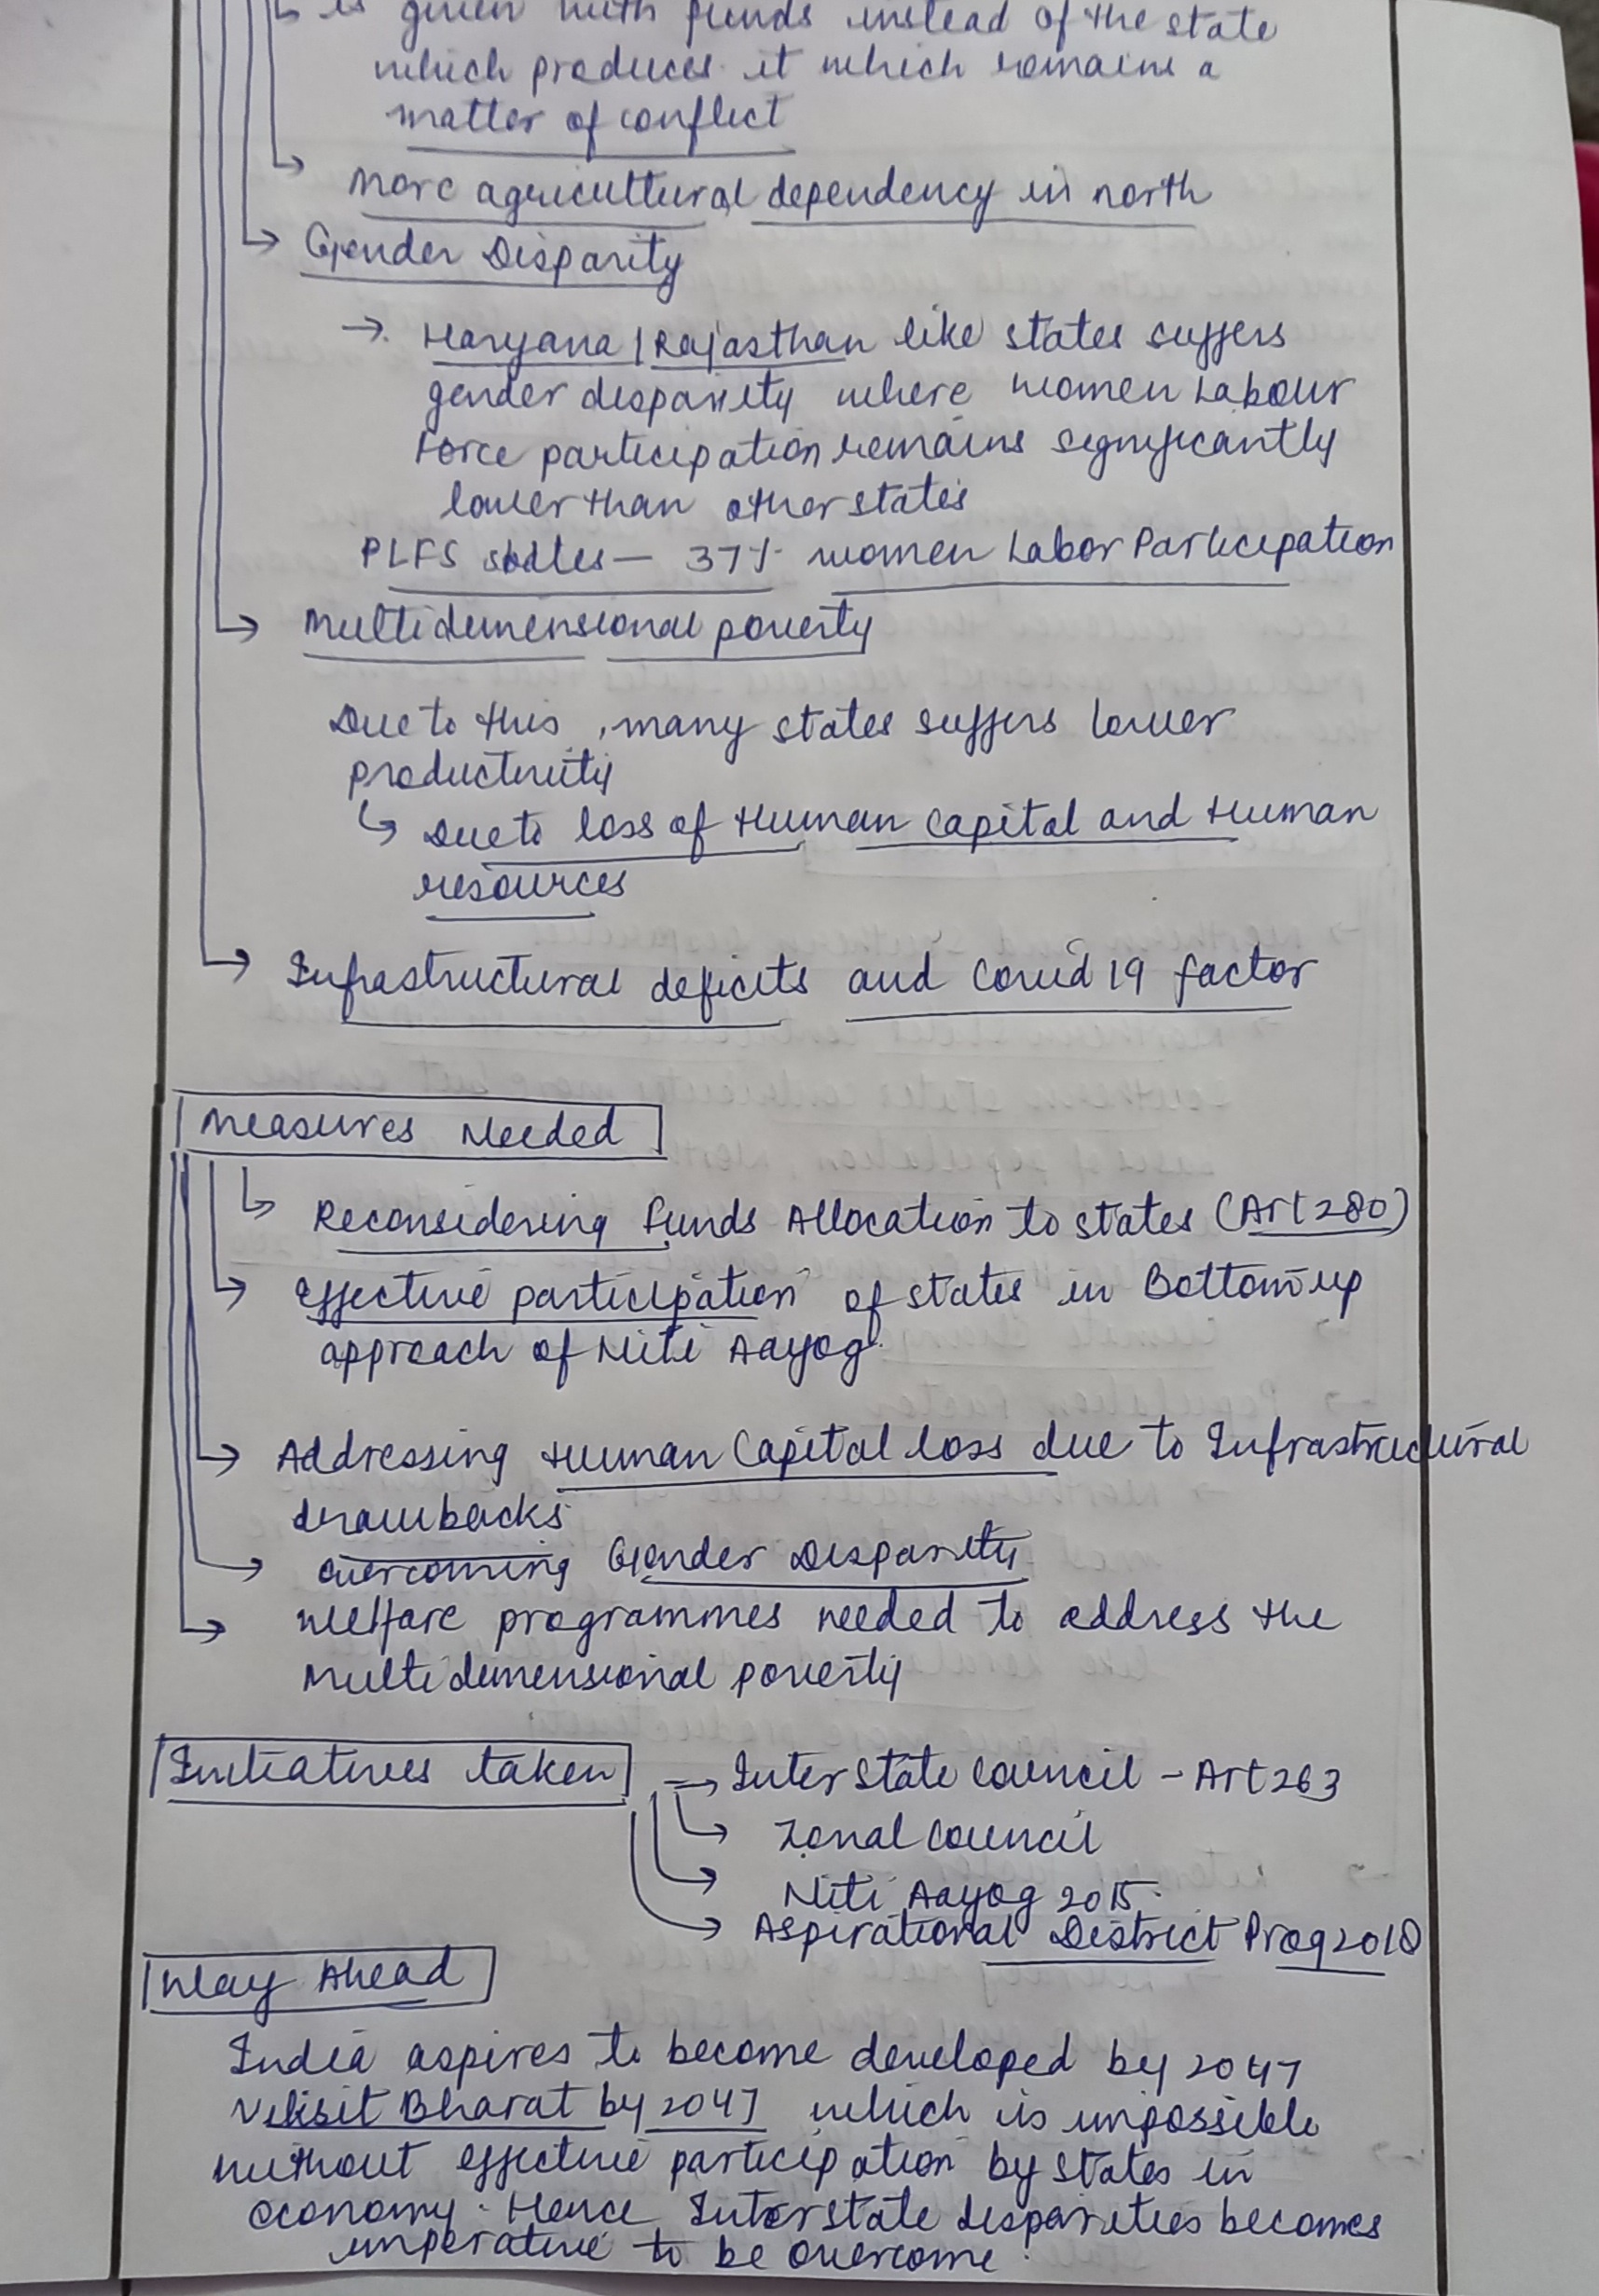 ↳ is given with funds instead of the state
which produces it which remains a
matter of conflict
→ More agricultural dependency in north
→ Gender Disparity
→ Haryana | Rajasthan like states suffers
gender disparity where women Labour
Force participation remains significantly
lower than other states
PLFS states - 37% women Labor Participation
→ Multidimensional poverty
Due to this, many states suffers lower
productivity
↳ Due to loss of Human Capital and Human
resources
→ Infrastructural deficits and Covid 19 factor
Measures Needed
↳ Reconsidering Funds Allocation to states (Art 280)
→ Effective participation of states in Bottom up
approach of Niti Aayog.
→ Addressing Human Capital loss due to Infrastructural
drawbacks
→ overcoming Gender Disparity
→ Welfare programmes needed to address the
Multidimensional poverty
Initiatives taken → Inter State Council - Art 263
→ Zonal Council
→ Niti Aayog 2015.
→ Aspirational District Prog 2018
Way Ahead
India aspires to become developed by 2047
Viksit Bharat by 2047 which is impossible
without effective participation by states in
economy. Hence Interstate disparities becomes
imperative to be overcome.